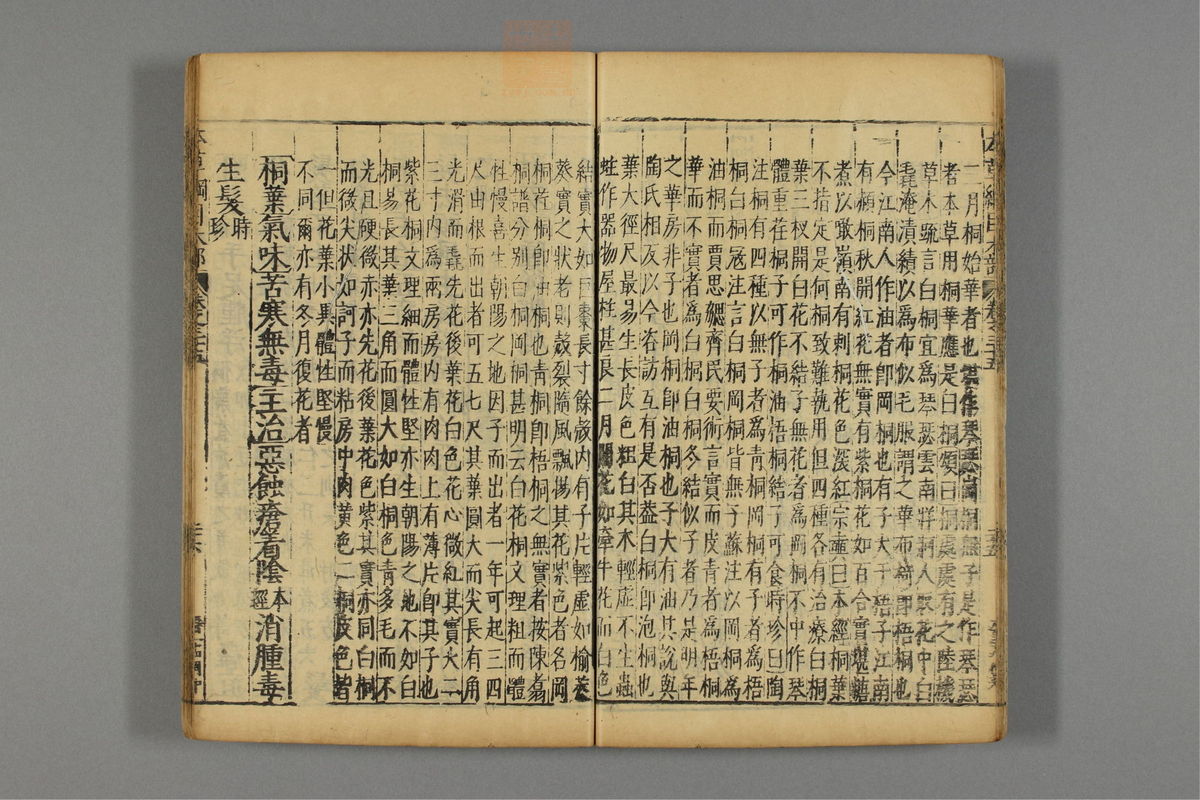 二月桐始華者也堪作琴瑟岡桐無子是作琴瑟
者本草用桐華應是白桐頌曰桐處處有之陸機
草木疏言白桐宜爲琴瑟雲南牂牁人取花中白
毳淹漬績以爲布似毛服謂之華布椅即梧桐也
今江南人作油者即岡桐也有子大于梧子江南
有頳桐秋開紅花無實有紫桐花如百合實堪糖
煮以噉嶺南有刺桐花色深紅宗奭曰本經桐葉
不指定是何桐致難執用但四種各有治療白桐
葉三杈開白花不結子無花者爲岡桐不中作琴
體重荏桐子可作桐油梧桐結子可食時珍曰陶
注桐有四種以無子者爲青桐岡桐有子者爲梧
桐白桐寇注言白桐岡桐皆無子蘇注以岡桐爲
油桐而賈思勰齊民要術言實而皮青者爲梧桐
華而不實者爲白桐白桐冬結似子者乃是明年
之華房非子也岡桐即油桐也子大有油其說與
陶氏相反以今咨訪互有是否葢白桐即泡桐也
葉大徑尺最易生長皮色粗白其木輕虛不生蟲
蛀作器物屋柱甚良二月開花如牽牛花而白色
結實大如巨棗長寸餘殼内有子片輕虛如榆莢
葵實之狀老則殼裂隨風飄揚其花紫色者名岡
桐荏桐即油桐也青桐即梧桐之無實者按陳翥
桐譜分別白桐岡桐甚明云白花桐文理粗而體
性慢喜生朝陽之地因子而出者一年可起三四
尺由根而出者可五七尺其葉圓大而尖長有角
光滑而毳先花後葉花白色花心微紅其實大二
三寸内爲兩房房内有肉肉上有薄片即其子也
紫花桐文理細而體性堅亦生朝陽之地不如白
桐易長其葉三角而圓大如白桐色青多毛而不
光且硬微赤亦先花後葉花色紫其實亦同白桐
而微尖狀如訶子而粘房中肉黄色二桐皮色皆
一但花葉小異體性堅慢
不同爾亦有冬月復花者
桐葉氣味苦寒無毒主治惡蝕瘡著陰本經消腫毒
生髮時珍